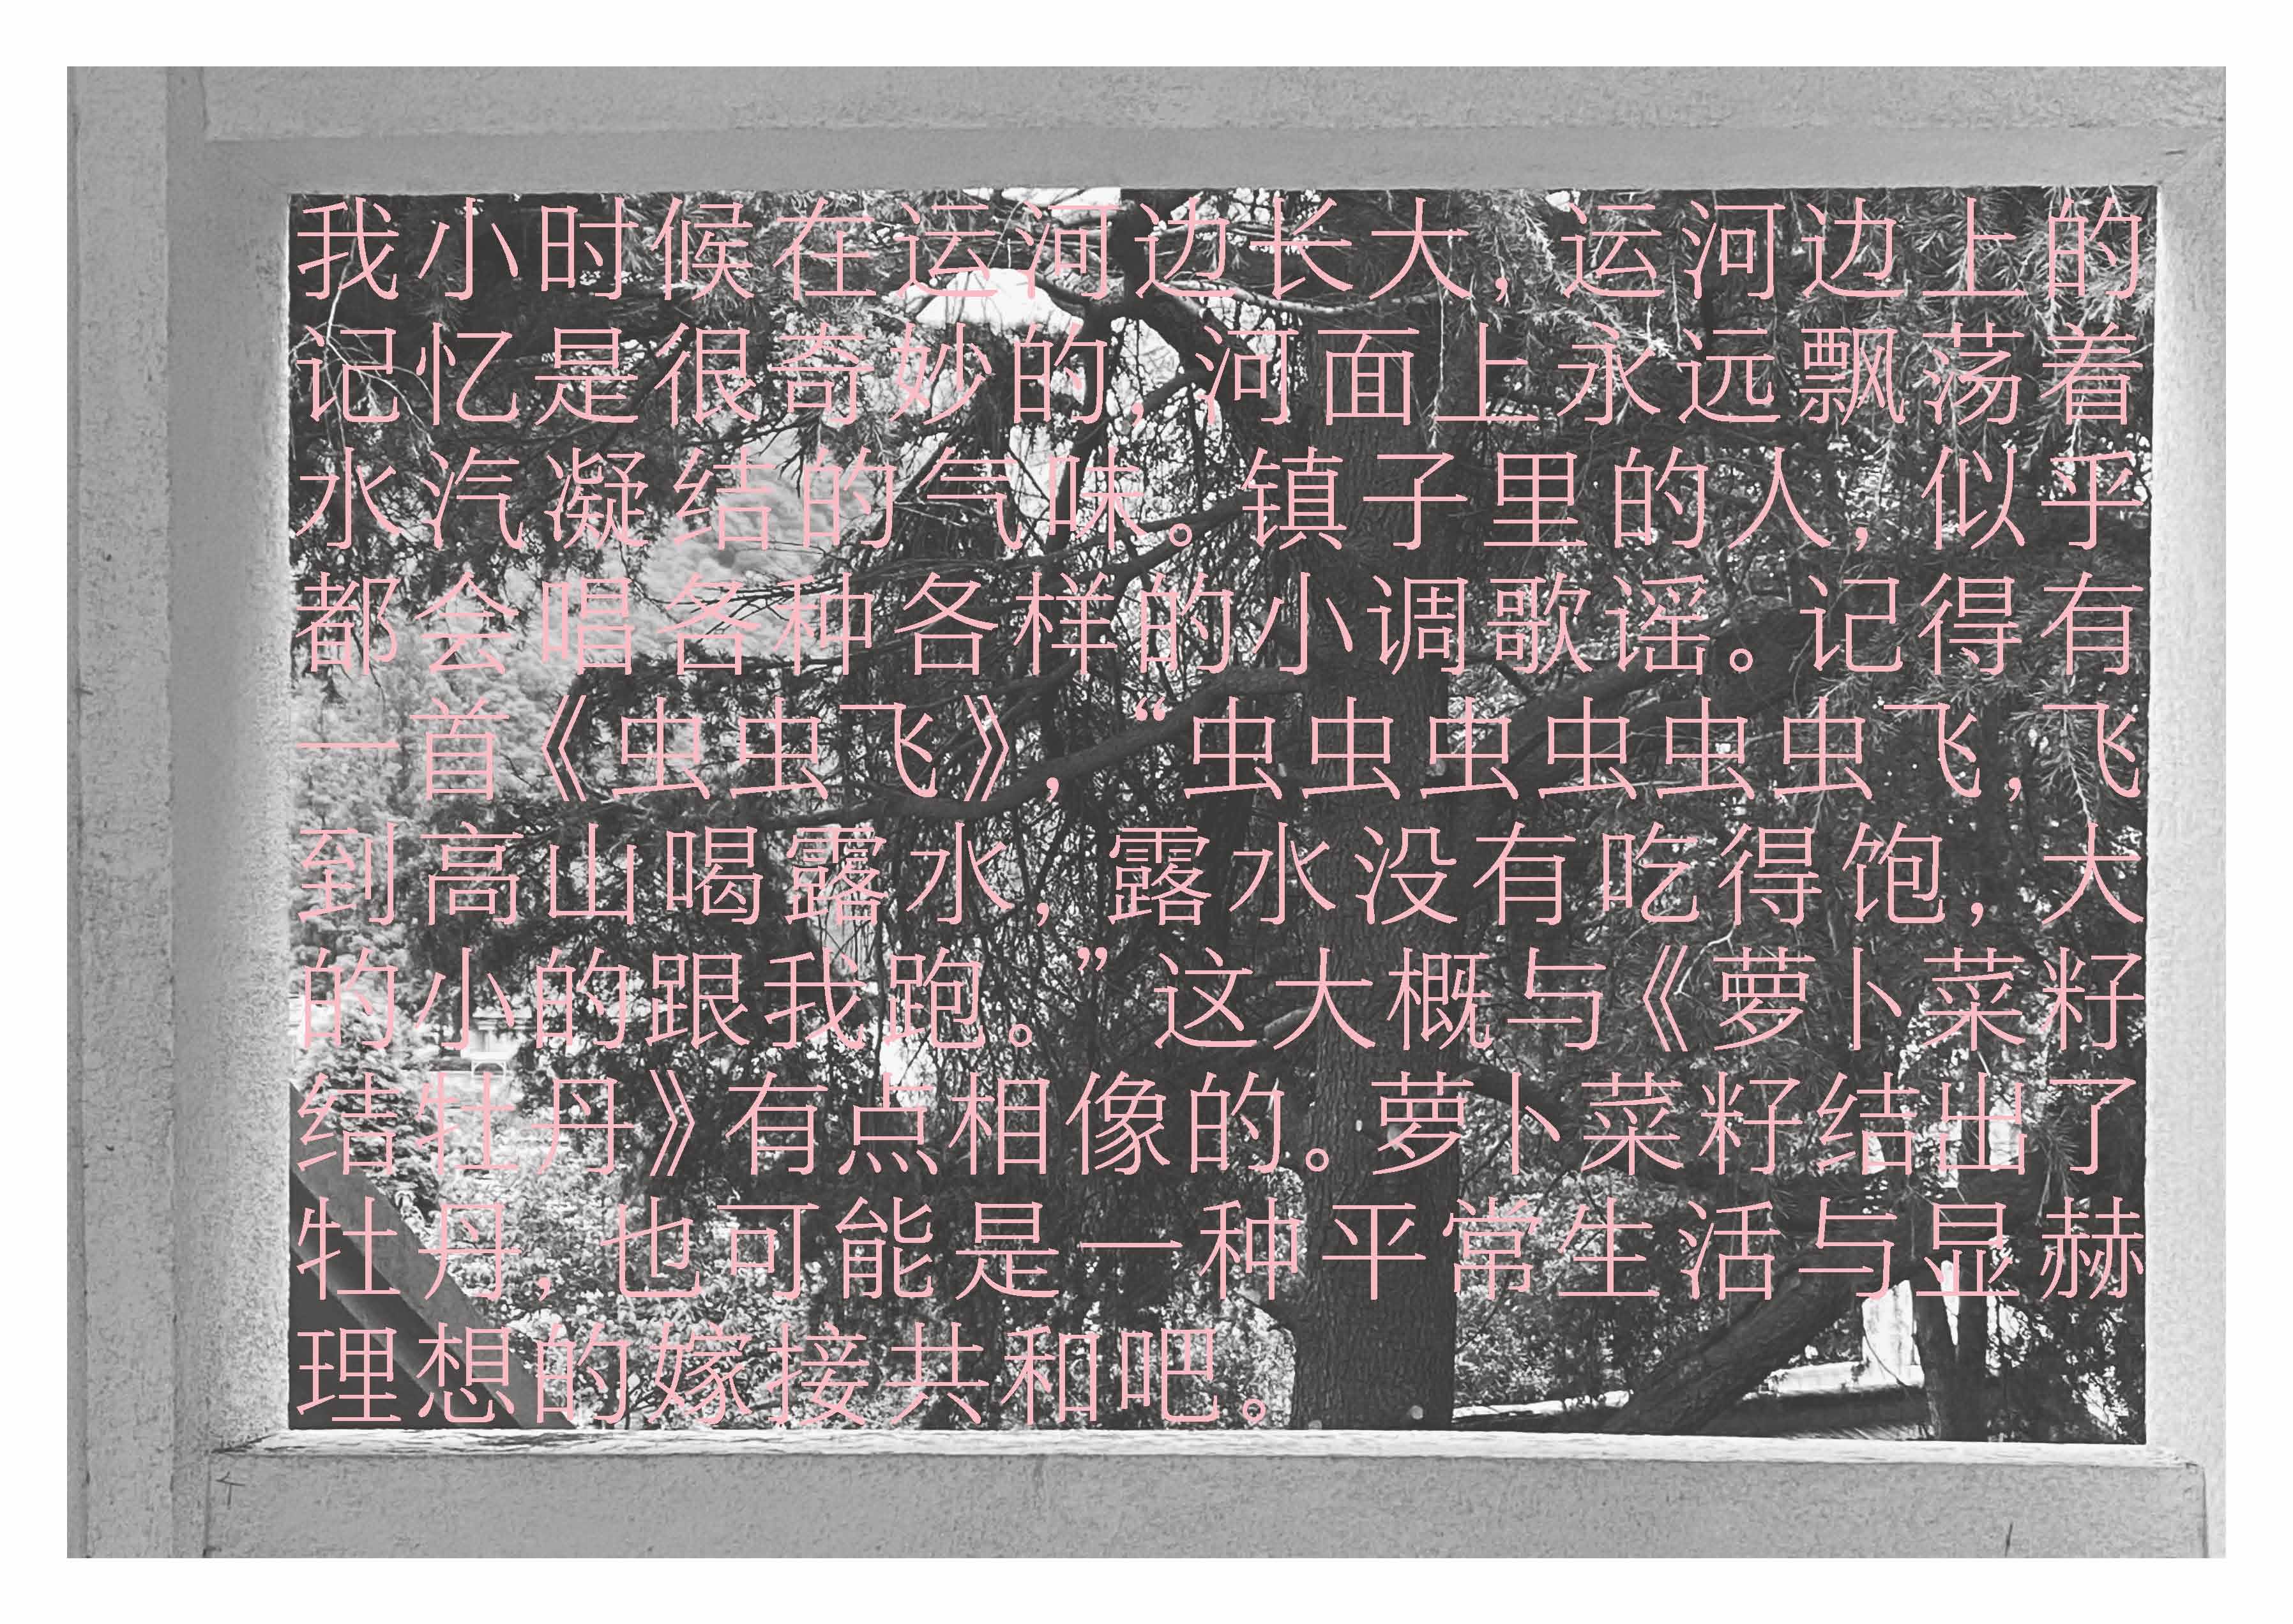 我小时候在运河边长大，运河边上的
记忆是很奇妙的，河面上永远飘荡着
水汽凝结的气味。镇子里的人，似乎
都会唱各种各样的小调歌谣。记得有
一首《虫虫飞》，“虫虫虫虫虫虫飞，飞
到高山喝露水，露水没有吃得饱，大
的小的跟我跑。”这大概与《萝卜菜籽
结牡丹》有点相像的。萝卜菜籽结出了
牡丹，也可能是一种平常生活与显赫
理想的嫁接共和吧。